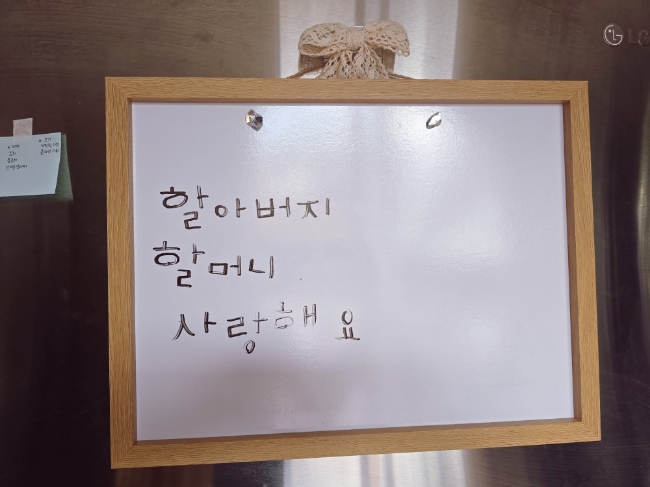 할아버지
할머니
사랑해요
LG